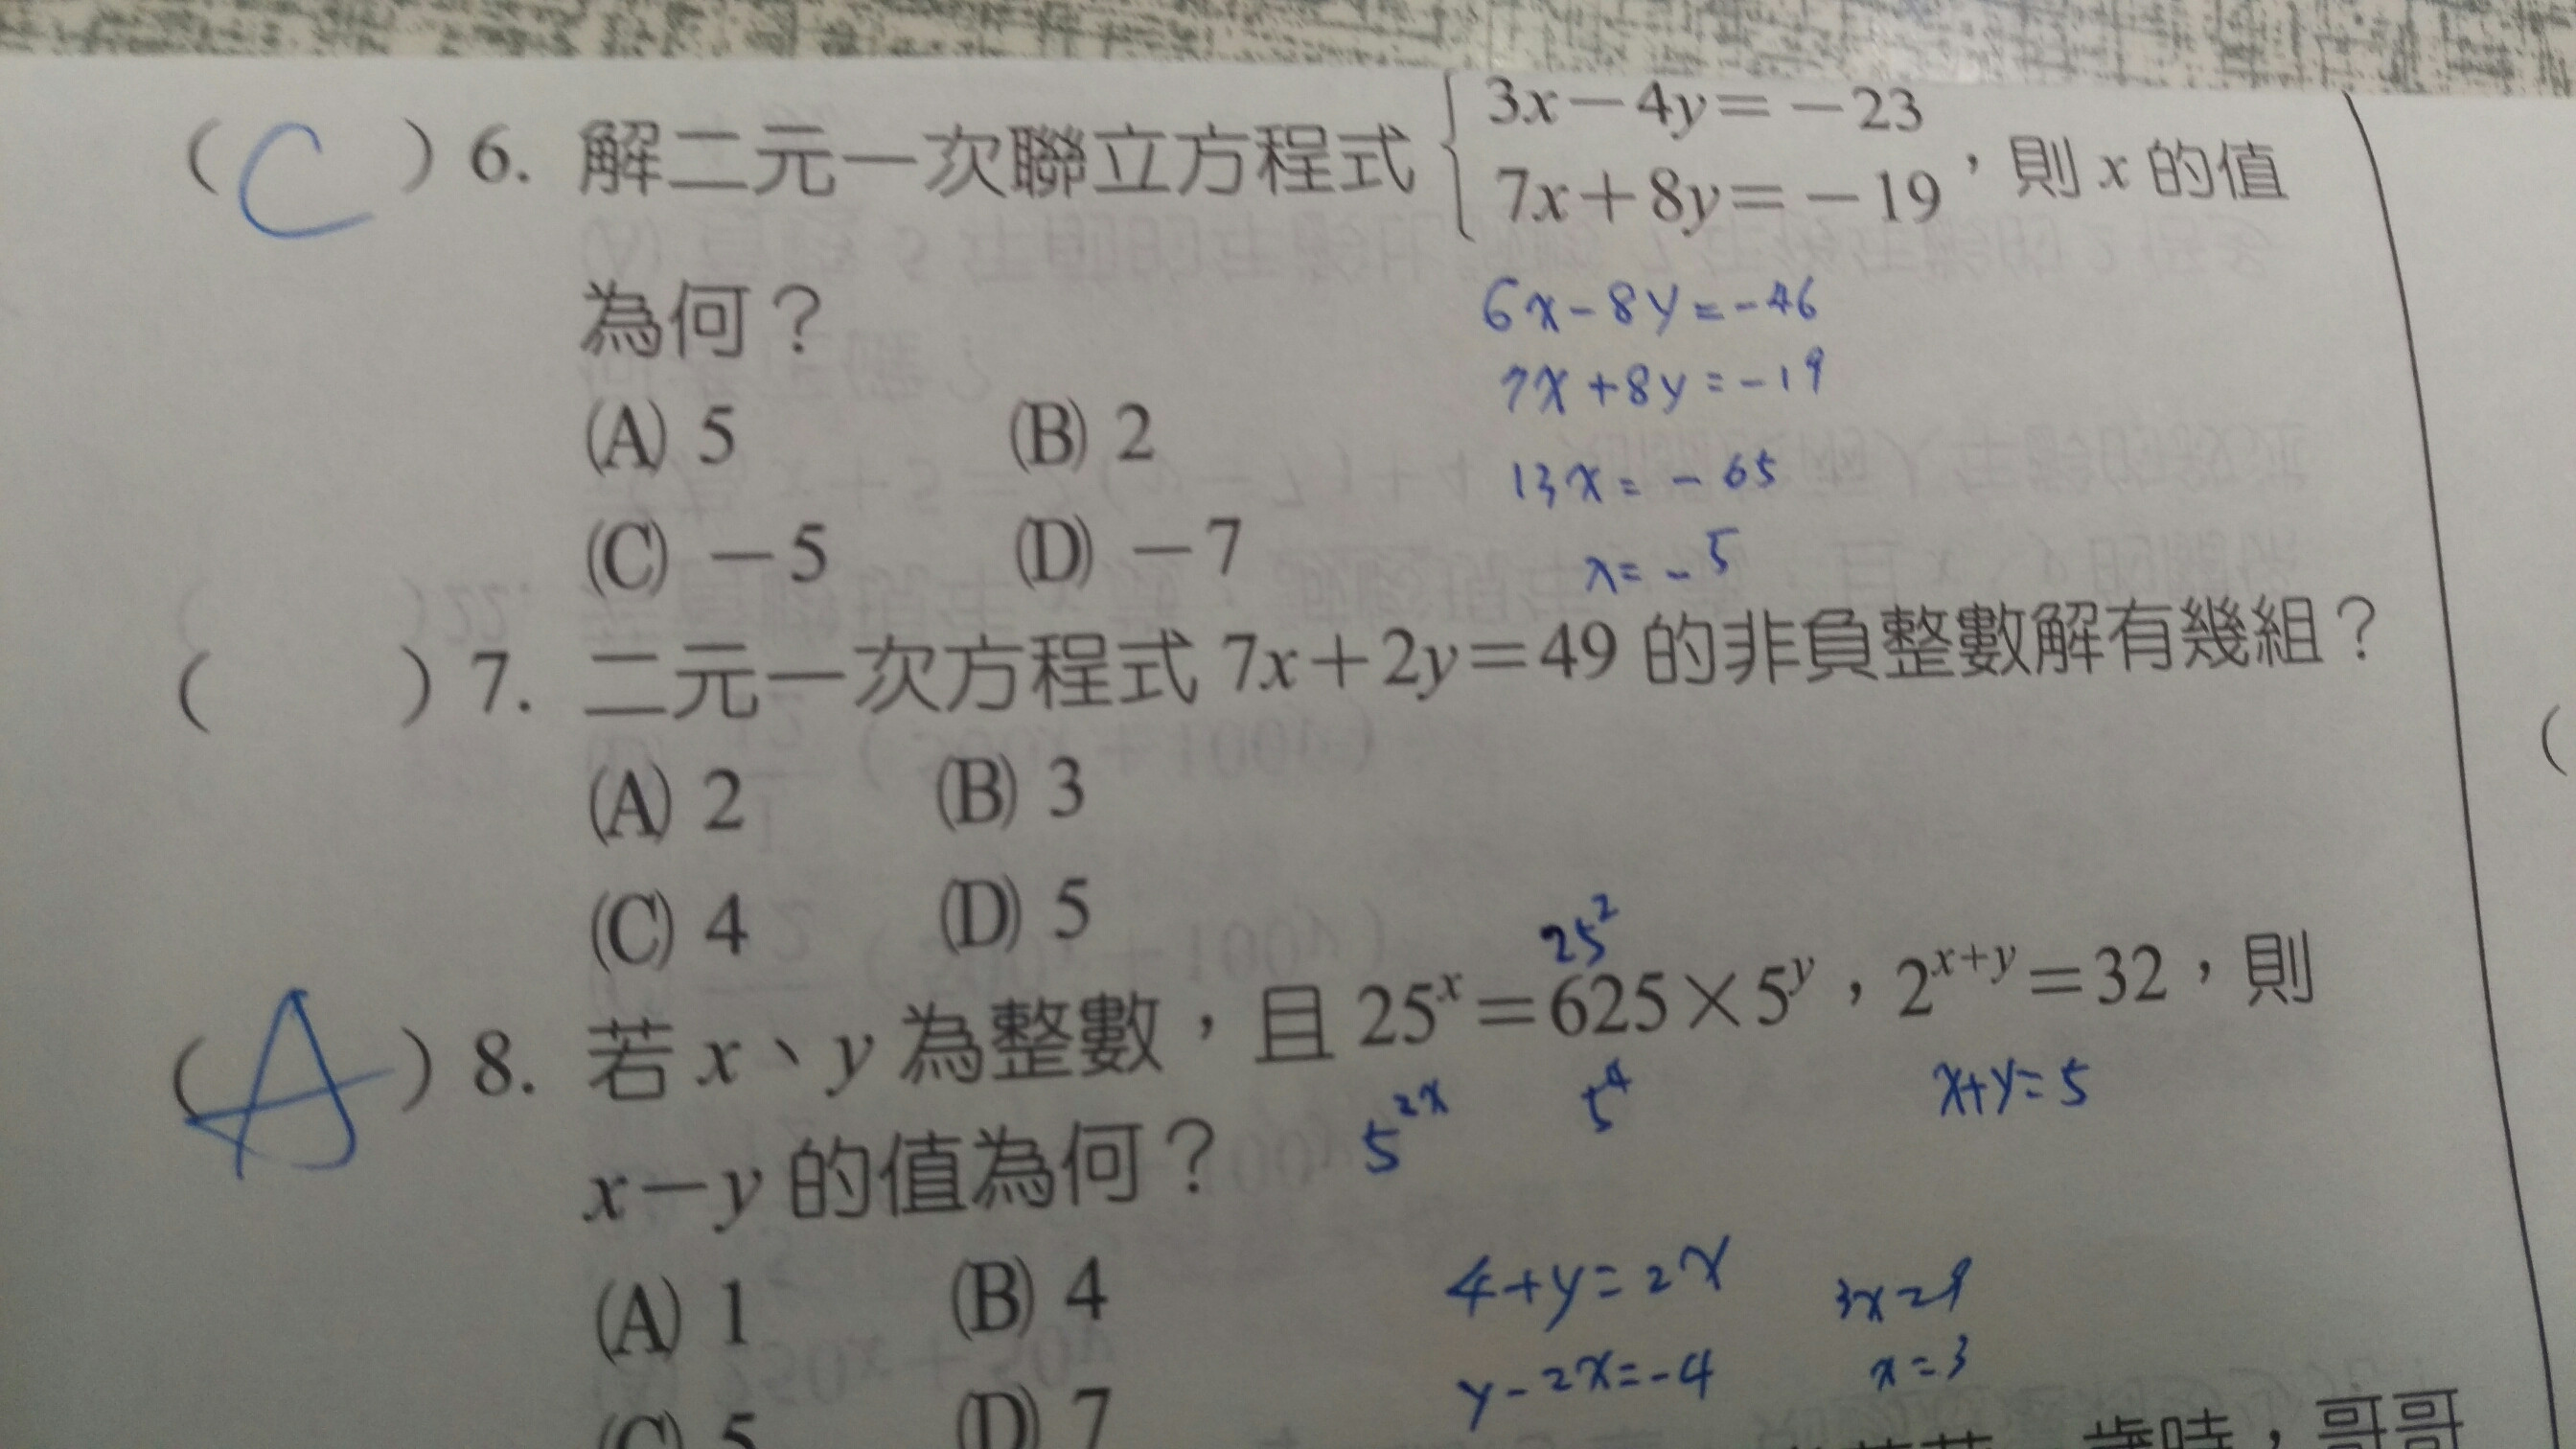 ( C ) 6. 解二元一次聯立方程式 { 3x－4y＝－23
7x＋8y＝－19 ，則 x 的值
為何？
6x-8y=-46
7x+8y=-19
(A) 5 (B) 2
13x=-65
(C) －5 (D) －7
x=-5
( ) 7. 二元一次方程式 7x＋2y＝49 的非負整數解有幾組？
(A) 2 (B) 3
(C) 4 (D) 5
25²
( A ) 8. 若 x、y 為整數，且 25ˣ＝625×5ʸ，2ˣ⁺ʸ＝32，則
5²ˣ 5⁴ x+y=5
x－y 的值為何？
4+y=2x 3x=9
(A) 1 (B) 4
y-2x=-4 x=3
(C) 5 (D) 7
歲時，哥哥